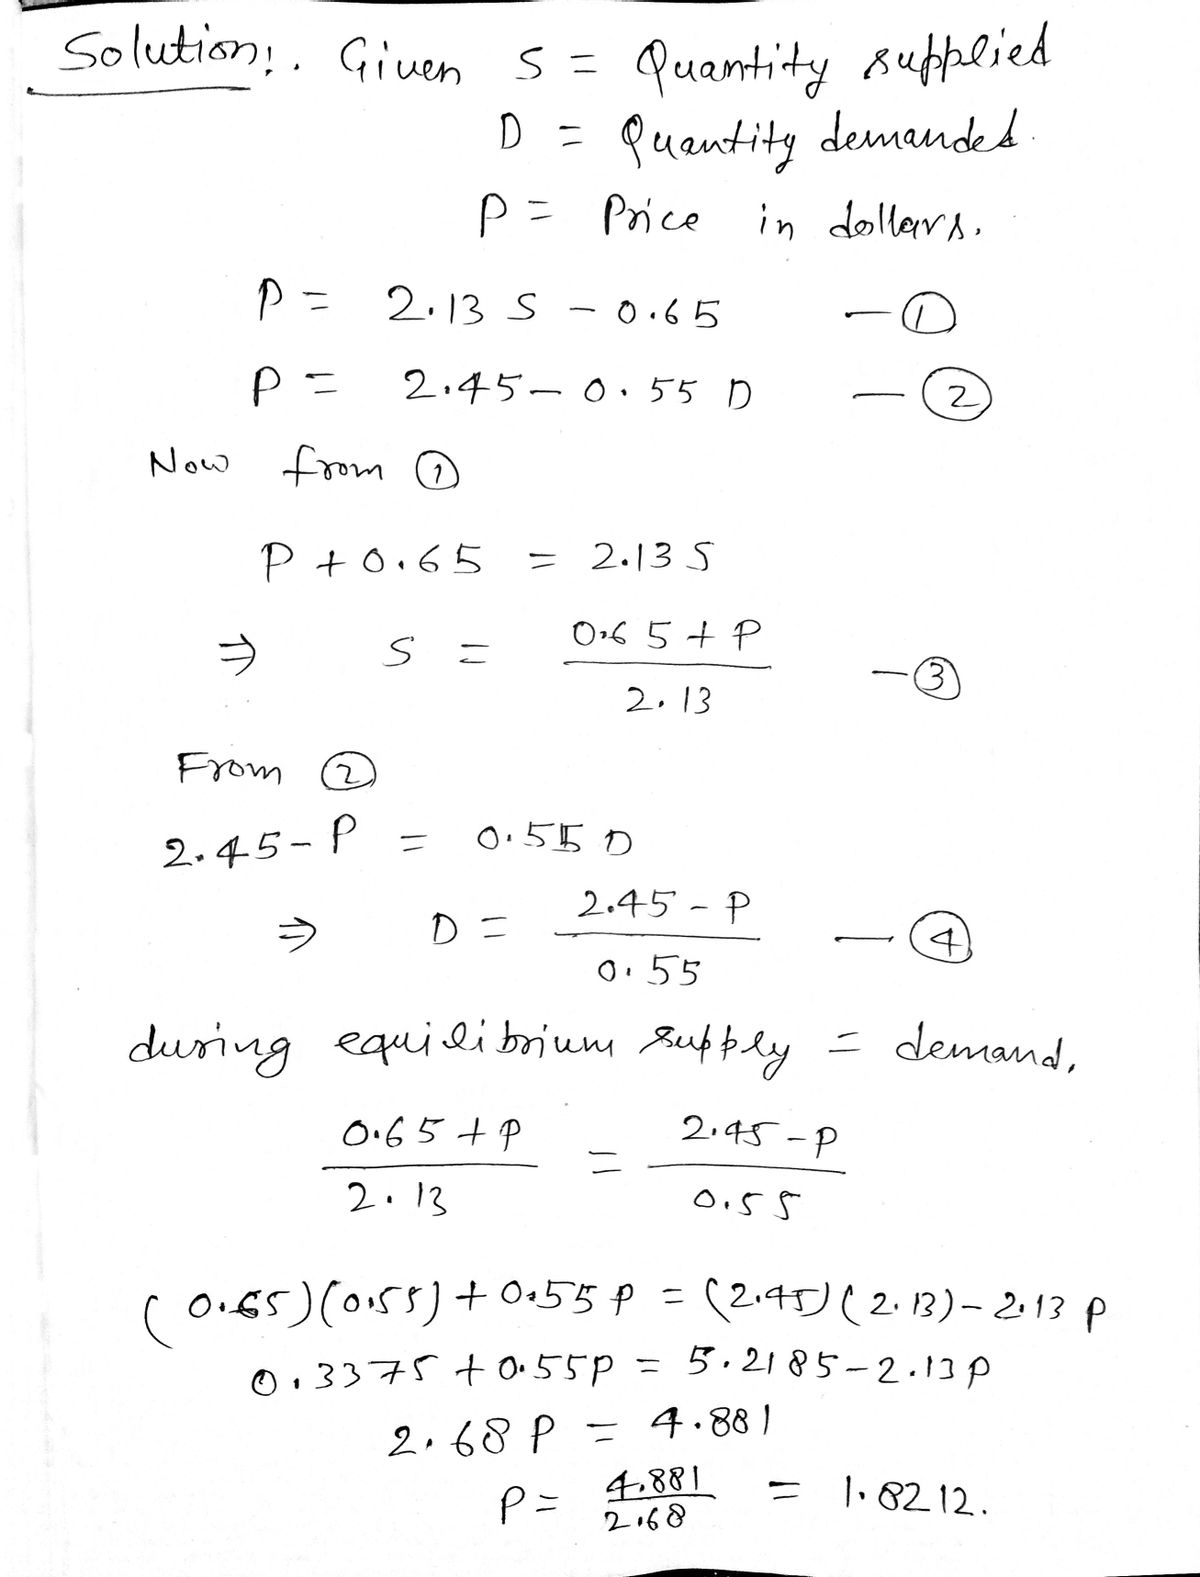 Solution:. Given S = Quantity supplied
D = Quantity demanded.
P = Price in dollars.
P = 2.13 S - 0.65 - ①
P = 2.45 - 0.55 D - ②
Now from ①
P + 0.65 = 2.13 S
⇒ S = (0.65 + P) / 2.13 - ③
From ②
2.45 - P = 0.55 D
⇒ D = (2.45 - P) / 0.55 - ④
during equilibrium supply = demand.
(0.65 + P) / 2.13 = (2.45 - P) / 0.55
(0.65)(0.55) + 0.55 P = (2.45)(2.13) - 2.13 P
0.3375 + 0.55P = 5.2185 - 2.13P
2.68 P = 4.881
P = 4.881 / 2.68 = 1.8212.